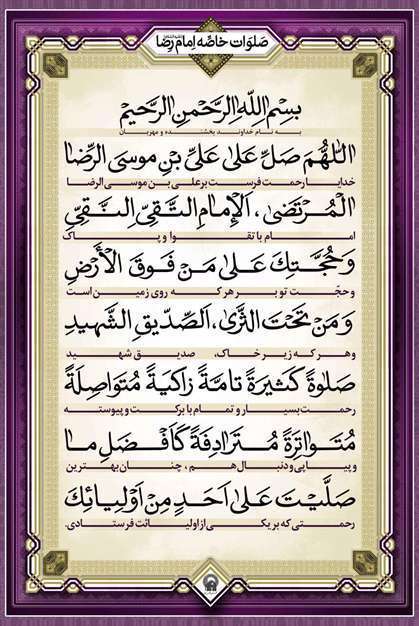 صلوات خاصّه امام رضا
بِسْمِ اللَّهِ الرَّحْمنِ الرَّحیمِ
به نام خداوند بخشنده و مهربان
اَللّهُمَّ صَلِّ عَلی عَلیِّ بْنِ موسَی الرِّضَا
خدایا رحمت فرست بر علی بن موسی الرضا
الْمُرْتَضی، اَلْإِمامِ التَّقِیِّ النَّقِیِّ
امام با تقوا و پاک
وَ حُجَّتِكَ عَلی مَنْ فَوْقَ الْأَرْضِ
و حجّت تو بر هر که روی زمین است
وَ مَنْ تَحْتَ الثَّری، اَلصِّدّیقِ الشَّهیدِ
و هر که زیر خاک، صدیق شهید
صَلوةً كَثیرَةً تامَّةً زاكِیَةً مُتَواصِلَةً
رحمت بسیار و تمام با برکت و پیوسته
مُتَواتِرَةً مُتَرادِفَةً كَأَفْضَلِ ما
و پیاپی و دنبال هم، چنان بهترین
صَلَّیْتَ عَلی اَحَدٍ مِنْ اَوْلِیائِكَ
رحمتی که بر یکی از اولیائت فرستادی.